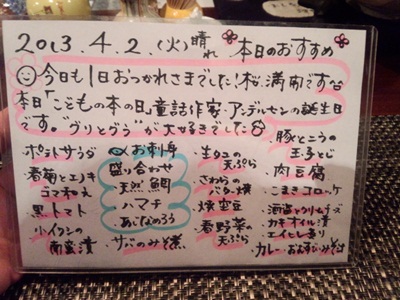 2013.4.2.(火)晴れ 本日のおすすめ
今日も1日おつかれさまでした!桜、満開です
本日「こどもの本の日」童話作家・アンデルセンの誕生日
です。"グリとグラ"が大好きでした
ポテトサラダ
春菊とエノキ
ゴマ和え
黒トマト
小イワシの
南蛮漬
お刺身
盛り合わせ
天然鯛
ハマチ
あじなめろう
・サバのみそ煮
・生タコの
天ぷら
・さわらの
バター焼
・焼空豆
・春野菜の
天ぷら
・豚とニラの
玉子とじ
・肉豆腐
・こまきコロッケ
・酒盗とクリームチーズ
・カキオイル漬
・エイヒレあぶり
・カレー・おむすび・みそ汁